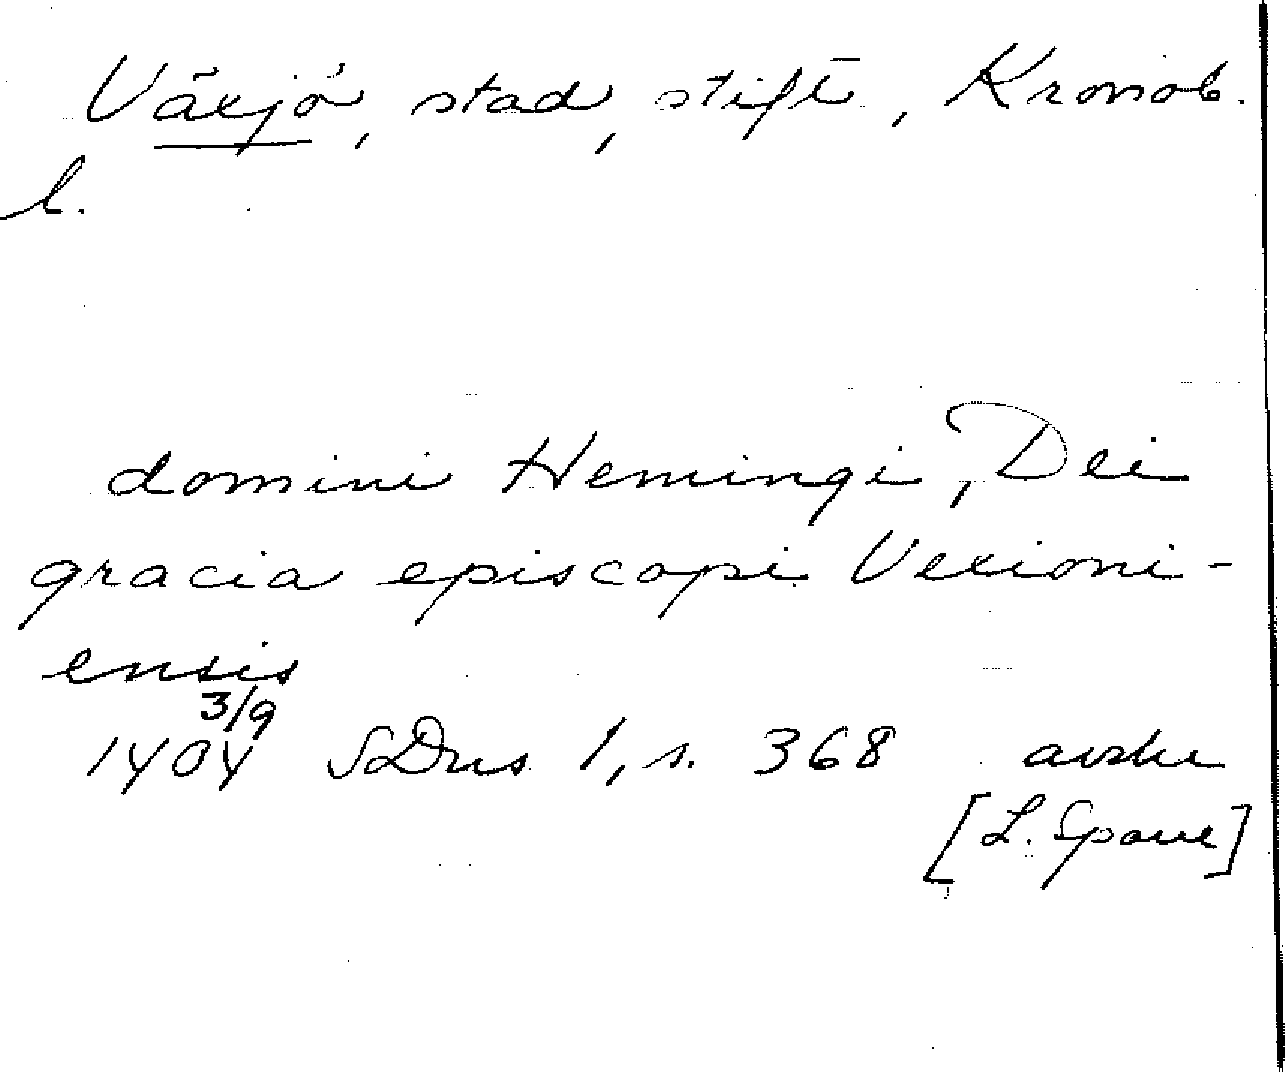 Växjö, stad, stift, Kronob.
l.
domini Hemingi, Dei
gracia episcopi Vexioni-
ensis
3/9
1404 SDns 1, s. 368 avskr
[L. Spane]